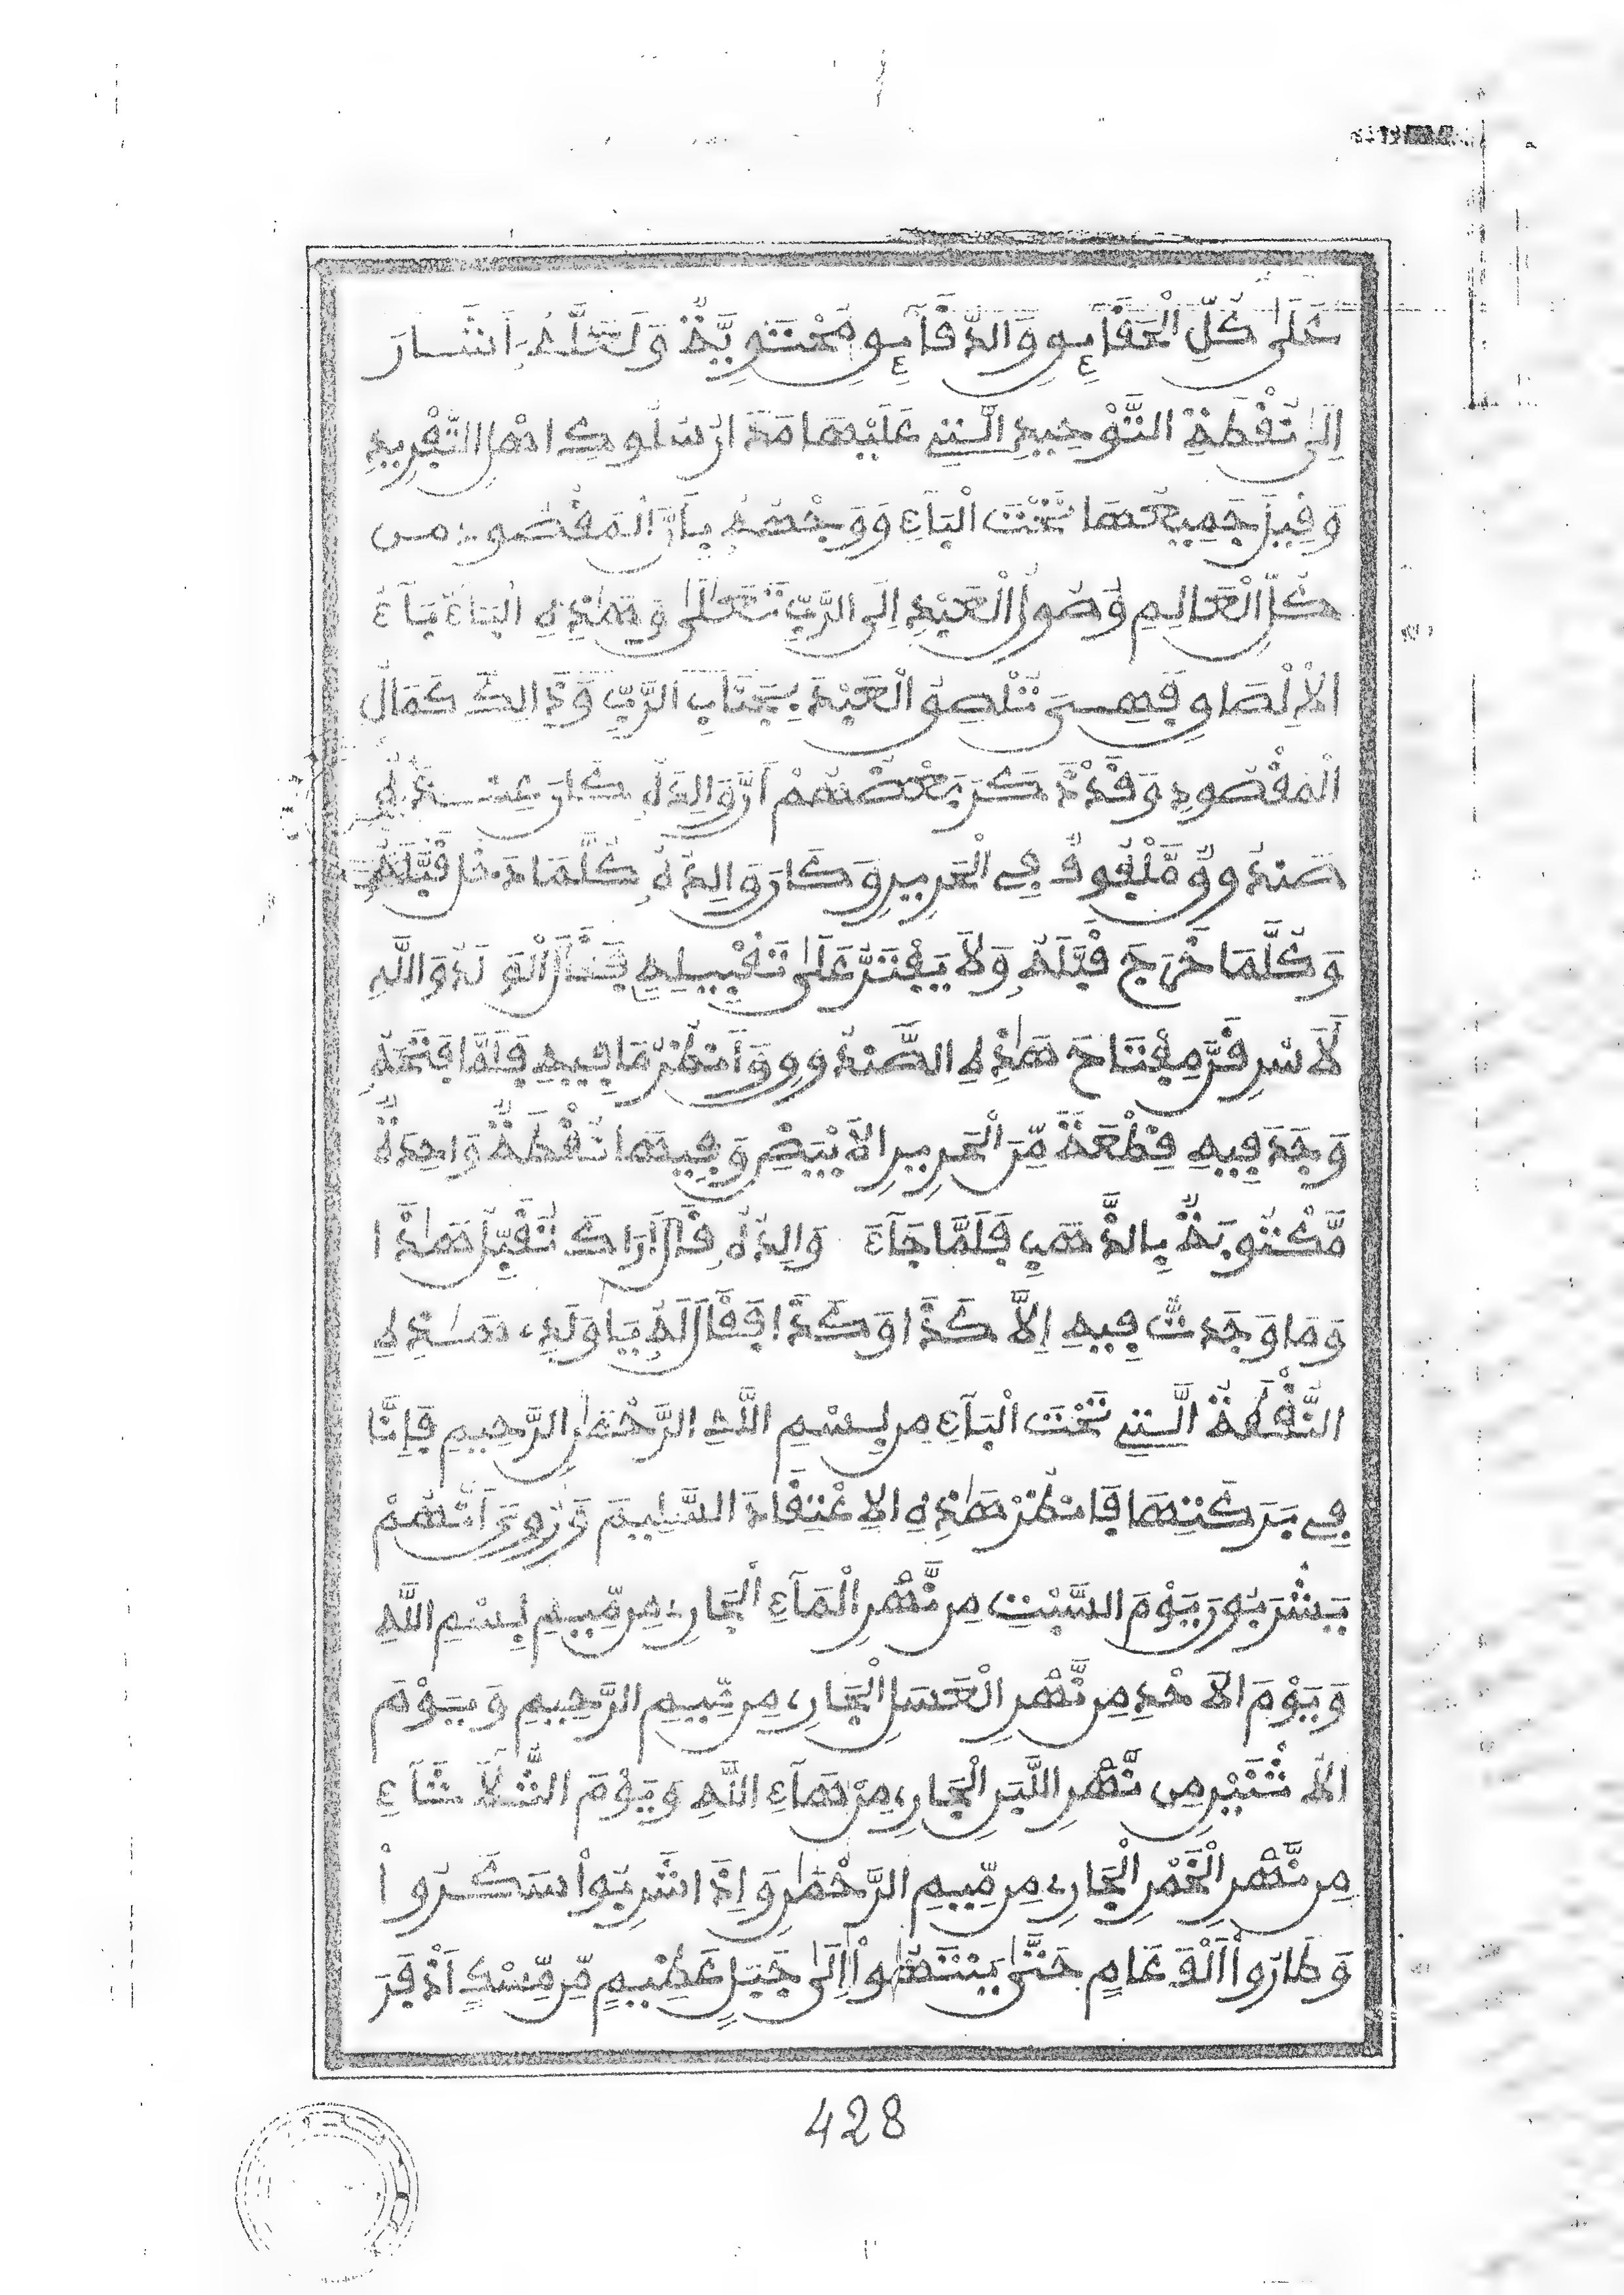 عَلَى كُلِّ الْحَقَآئِقِ وَالدَّقَآئِقِ مُحْتَوِيَّةٌ وَلَعَلَّهُ أَشَارَ
إِلَى نُقْطَةِ التَّوْحِيدِ الَّتِي عَلَيْهَا مَدَارُ سُلُوكِ اهْلِ التَّفْرِيدِ
وَقِيلَ جَمِيعُهَا تَحْتَ الْبَآءِ وَوَجْهُهُ بِأَنَّ الْمَقْصُودَ مِن
كُلِّ الْعَالِمِ وُصُولُ الْعَبْدِ إِلَى الرَّبِّ تَعَلَى وَهَذِهِ الْبَآءُ بَآءُ
الْإِلْصَاقِ فَهِيَ تُلْصِقُ الْعَبْدَ بِجَنَابِ الرَّبِّ وَذَالِكَ كَمَالُ
الْمَقْصُودِ وَقَدْ ذَكَرَ بَعْضُهُمْ أَنَّ وَالِدَهُ كَانَ عِنْدَهُ
صَنْدُوقٌ مَّلْفُوفٌ فِي الْحَرِيرِ وَكَانَ وَالِدُهُ كُلَّمَا دَخَلَ قَبَّلَهُ
وَكُلَّمَا خَرَجَ قَبَّلَهُ وَلَا يَفْتَرُّ عَلَى تَقْبِيلِهِ فَقَالَ الْوَلَدُ وَاللَّهِ
لَأَسْرِقَنَّ مِفْتَاحَ هَذِهِ الصَّنْدُوقِ وَأَنظُرُ مَا فِيهِ فَلَمَّا فَتَحَهُ
وَجَدَ فِيهِ قِطْعَةً مِّنَ الْحَرِيرِ الْأَبْيَضِ وَفِيهَا نُقْطَةٌ وَاحِدَةٌ
مَّكْتُوبَةٌ بِالذَّهَبِ فَلَمَّا جَآءَ وَالِدُهُ قَالَ أَرَاكَ تُقَبِّلُ هَذَا
وَمَا وَجَدتُّ فِيهِ إِلَّا كَذَا وَكَذَا فَقَالَ لَهُ يَا وَلَدِي هَذِهِ
النُّقْطَةُ الَّتِي تَحْتَ الْبَآءِ مِن بِسْمِ اللَّهِ الرَّحْمَنِ الرَّحِيمِ فَإِنَّا
فِي بَرَكَتِهَا فَانظُرْ هَذِهِ الِاعْتِقَادَ السَّلِيمَ وَرُوِيَ أَنَّهُمْ
يَشْرَبُونَ يَوْمَ السَّبْتِ مِن نَّهْرِ الْمَآءِ الْجَارِي مِن مِّيمِ بِسْمِ اللَّهِ
وَيَوْمَ الْأَحَدِ مِن نَّهْرِ الْعَسَلِ الْجَارِي مِن مِّيمِ الرَّحِيمِ وَيَوْمَ
الْاثْنَيْنِ مِن نَّهْرِ اللَّبَنِ الْجَارِي مِنْ هَآءِ اللَّهِ وَيَوْمَ الثُّلَاثَآءِ
مِن نَّهْرِ الْخَمْرِ الْجَارِي مِن مِّيمِ الرَّحْمَنِ وَإِذَا شَرِبُوا سَكَرُوا
وَطَارُوا أَلْفَ عَامٍ حَتَّى يَنْتَهُوا إِلَى جَبَلٍ عَظِيمٍ مِّن مِّسْكٍ أَذْفَرَ
428